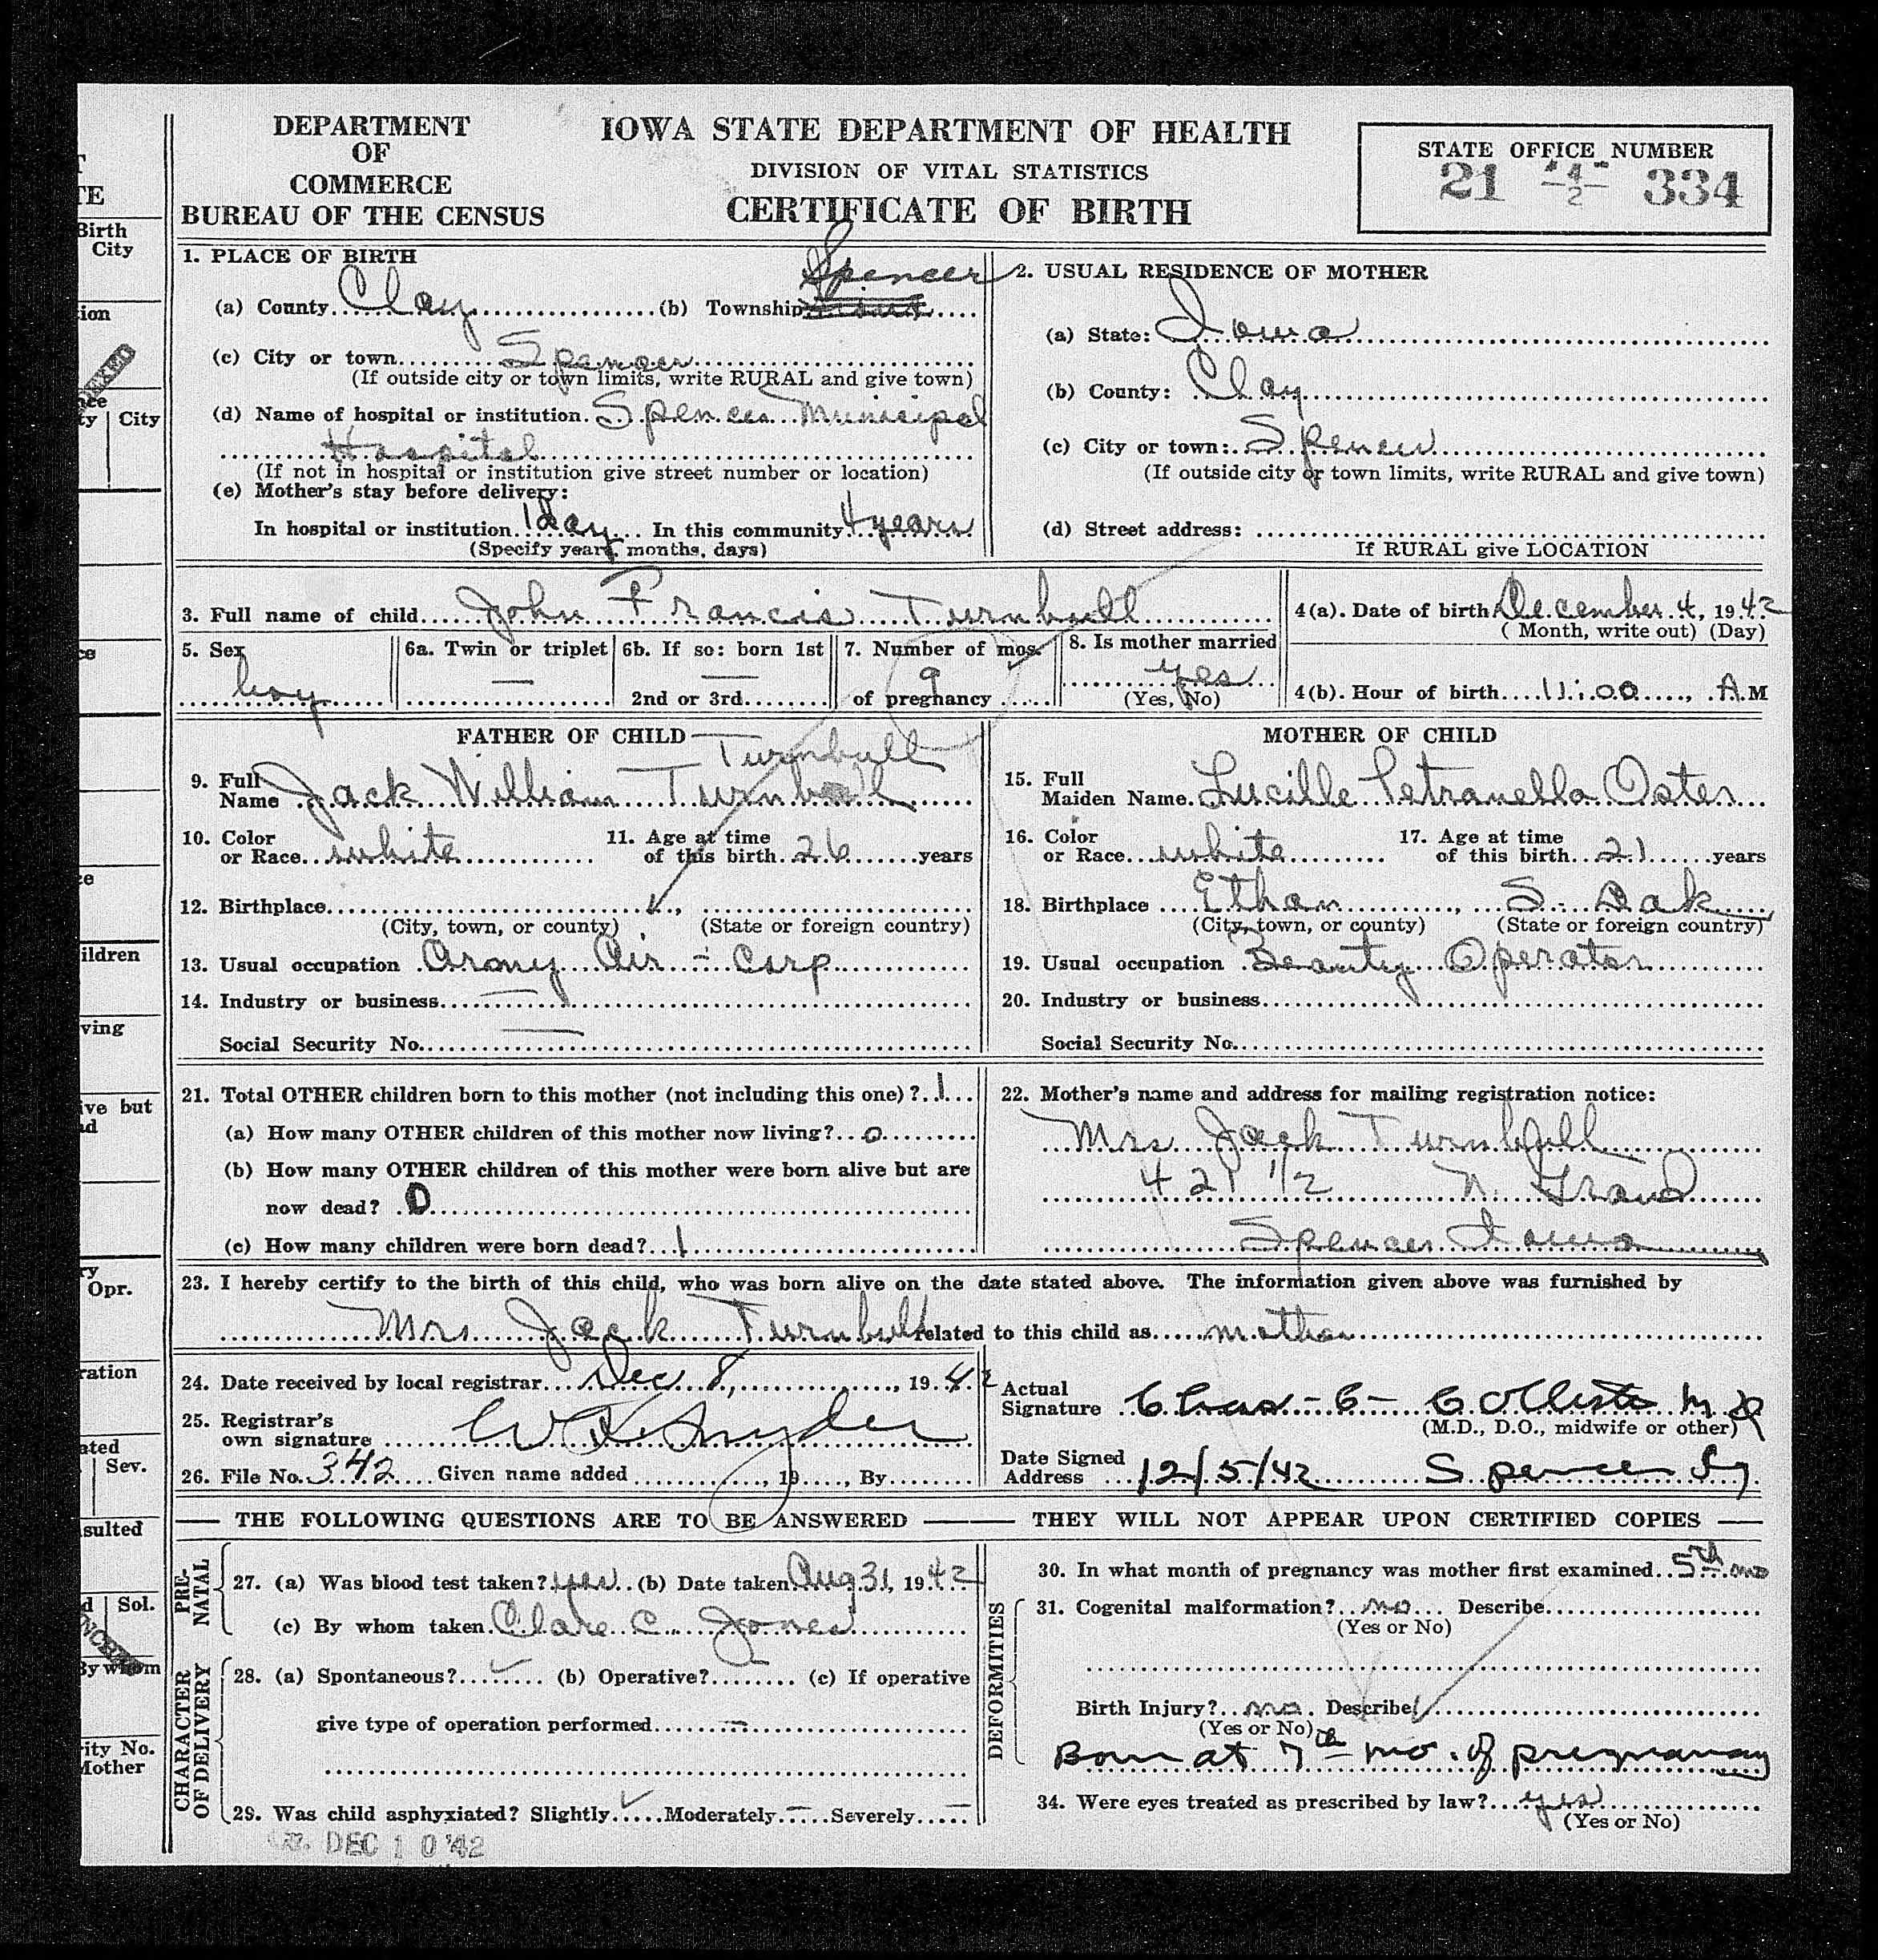 DEPARTMENT
OF
COMMERCE
BUREAU OF THE CENSUS
IOWA STATE DEPARTMENT OF HEALTH
DIVISION OF VITAL STATISTICS
CERTIFICATE OF BIRTH
STATE OFFICE NUMBER
21 -4-2 334
1. PLACE OF BIRTH
(a) County Clay (b) Township Spencer
(c) City or town Spencer
(If outside city or town limits, write RURAL and give town)
(d) Name of hospital or institution Spencer Municipal
Hospital
(If not in hospital or institution give street number or location)
(e) Mother's stay before delivery:
In hospital or institution 1 day In this community 4 years
(Specify years, months, days)
2. USUAL RESIDENCE OF MOTHER
(a) State: Iowa
(b) County: Clay
(c) City or town: Spencer
(If outside city or town limits, write RURAL and give town)
(d) Street address:
If RURAL give LOCATION
3. Full name of child John Francis Turnbull
4(a). Date of birth December 4, 1942
(Month, write out) (Day)
5. Sex boy
6a. Twin or triplet —
6b. If so: born 1st —
2nd or 3rd
7. Number of mos. 9
of pregnancy
8. Is mother married
yes
(Yes, No)
4(b). Hour of birth 11:00, A M
FATHER OF CHILD Turnbull
9. Full
Name Jack William Turnbull
10. Color
or Race white
11. Age at time
of this birth 26 years
12. Birthplace
(City, town, or county) (State or foreign country)
13. Usual occupation Army Air - Corp
14. Industry or business —
Social Security No. —
MOTHER OF CHILD
15. Full
Maiden Name Lucille Petranella Oster
16. Color
or Race white
17. Age at time
of this birth 21 years
18. Birthplace Ethan, S. Dak
(City, town, or county) (State or foreign country)
19. Usual occupation Beauty Operator
20. Industry or business
Social Security No.
21. Total OTHER children born to this mother (not including this one)? 1
(a) How many OTHER children of this mother now living? 0
(b) How many OTHER children of this mother were born alive but are
now dead? 0
(c) How many children were born dead? 1
22. Mother's name and address for mailing registration notice:
Mrs Jack Turnbull
421 1/2 N. Grand
Spencer Iowa
23. I hereby certify to the birth of this child, who was born alive on the date stated above. The information given above was furnished by
Mrs Jack Turnbull related to this child as mother
24. Date received by local registrar Dec 8, 1942
25. Registrar's
own signature W K Snyder
26. File No. 342 Given name added , 19 , By
Actual
Signature Chas - C - Collester M D
(M.D., D.O., midwife or other)
Date Signed
Address 12/5/42 Spencer Ia
THE FOLLOWING QUESTIONS ARE TO BE ANSWERED — THEY WILL NOT APPEAR UPON CERTIFIED COPIES
PRE-
NATAL
27. (a) Was blood test taken? yes (b) Date taken Aug 31, 1942
(c) By whom taken Clare C. Jones
CHARACTER
OF DELIVERY
28. (a) Spontaneous? ✓ (b) Operative? (c) If operative
give type of operation performed —
29. Was child asphyxiated? Slightly ✓ Moderately — Severely —
DEC 10 '42
DEFORMITIES
30. In what month of pregnancy was mother first examined 5th mo
31. Cogenital malformation? no Describe
(Yes or No)
Birth Injury? no Describe
(Yes or No)
Born at 7th mo. of pregnancy
34. Were eyes treated as prescribed by law? yes
(Yes or No)
TE
Birth
City
ion
City
ildren
ving
ive but
Opr.
ration
ated
Sev.
sulted
Sol.
By whom
ity No.
Mother